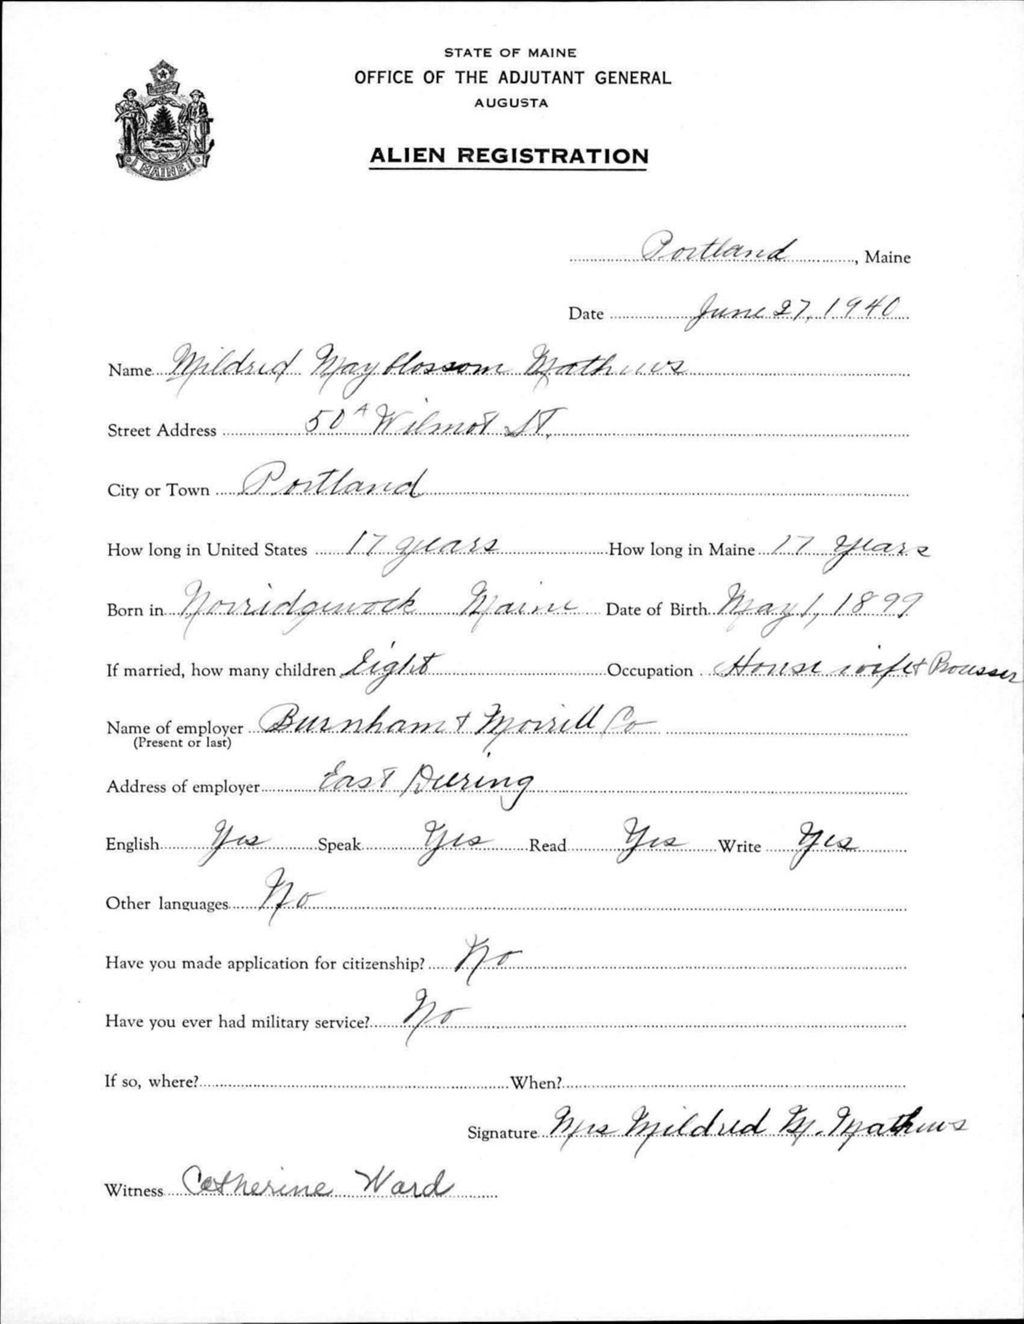 STATE OF MAINE
OFFICE OF THE ADJUTANT GENERAL
AUGUSTA
ALIEN REGISTRATION
MAINE
Portland, Maine
Date June 27, 1940
Name Mildred Mayblossom Mathews
Street Address 50 A Wilmot St.
City or Town Portland
How long in United States 17 years How long in Maine 17 years
Born in Norridgewock Maine Date of Birth May 1, 1899
If married, how many children Eight Occupation House wife &
Name of employer Burnham & Morrill Co
(Present or last)
Address of employer East Deering
English Yes Speak Yes Read Yes Write Yes
Other languages No
Have you made application for citizenship? No
Have you ever had military service? No
If so, where? When?
Signature Mrs Mildred M. Mathews
Witness Catherine Ward